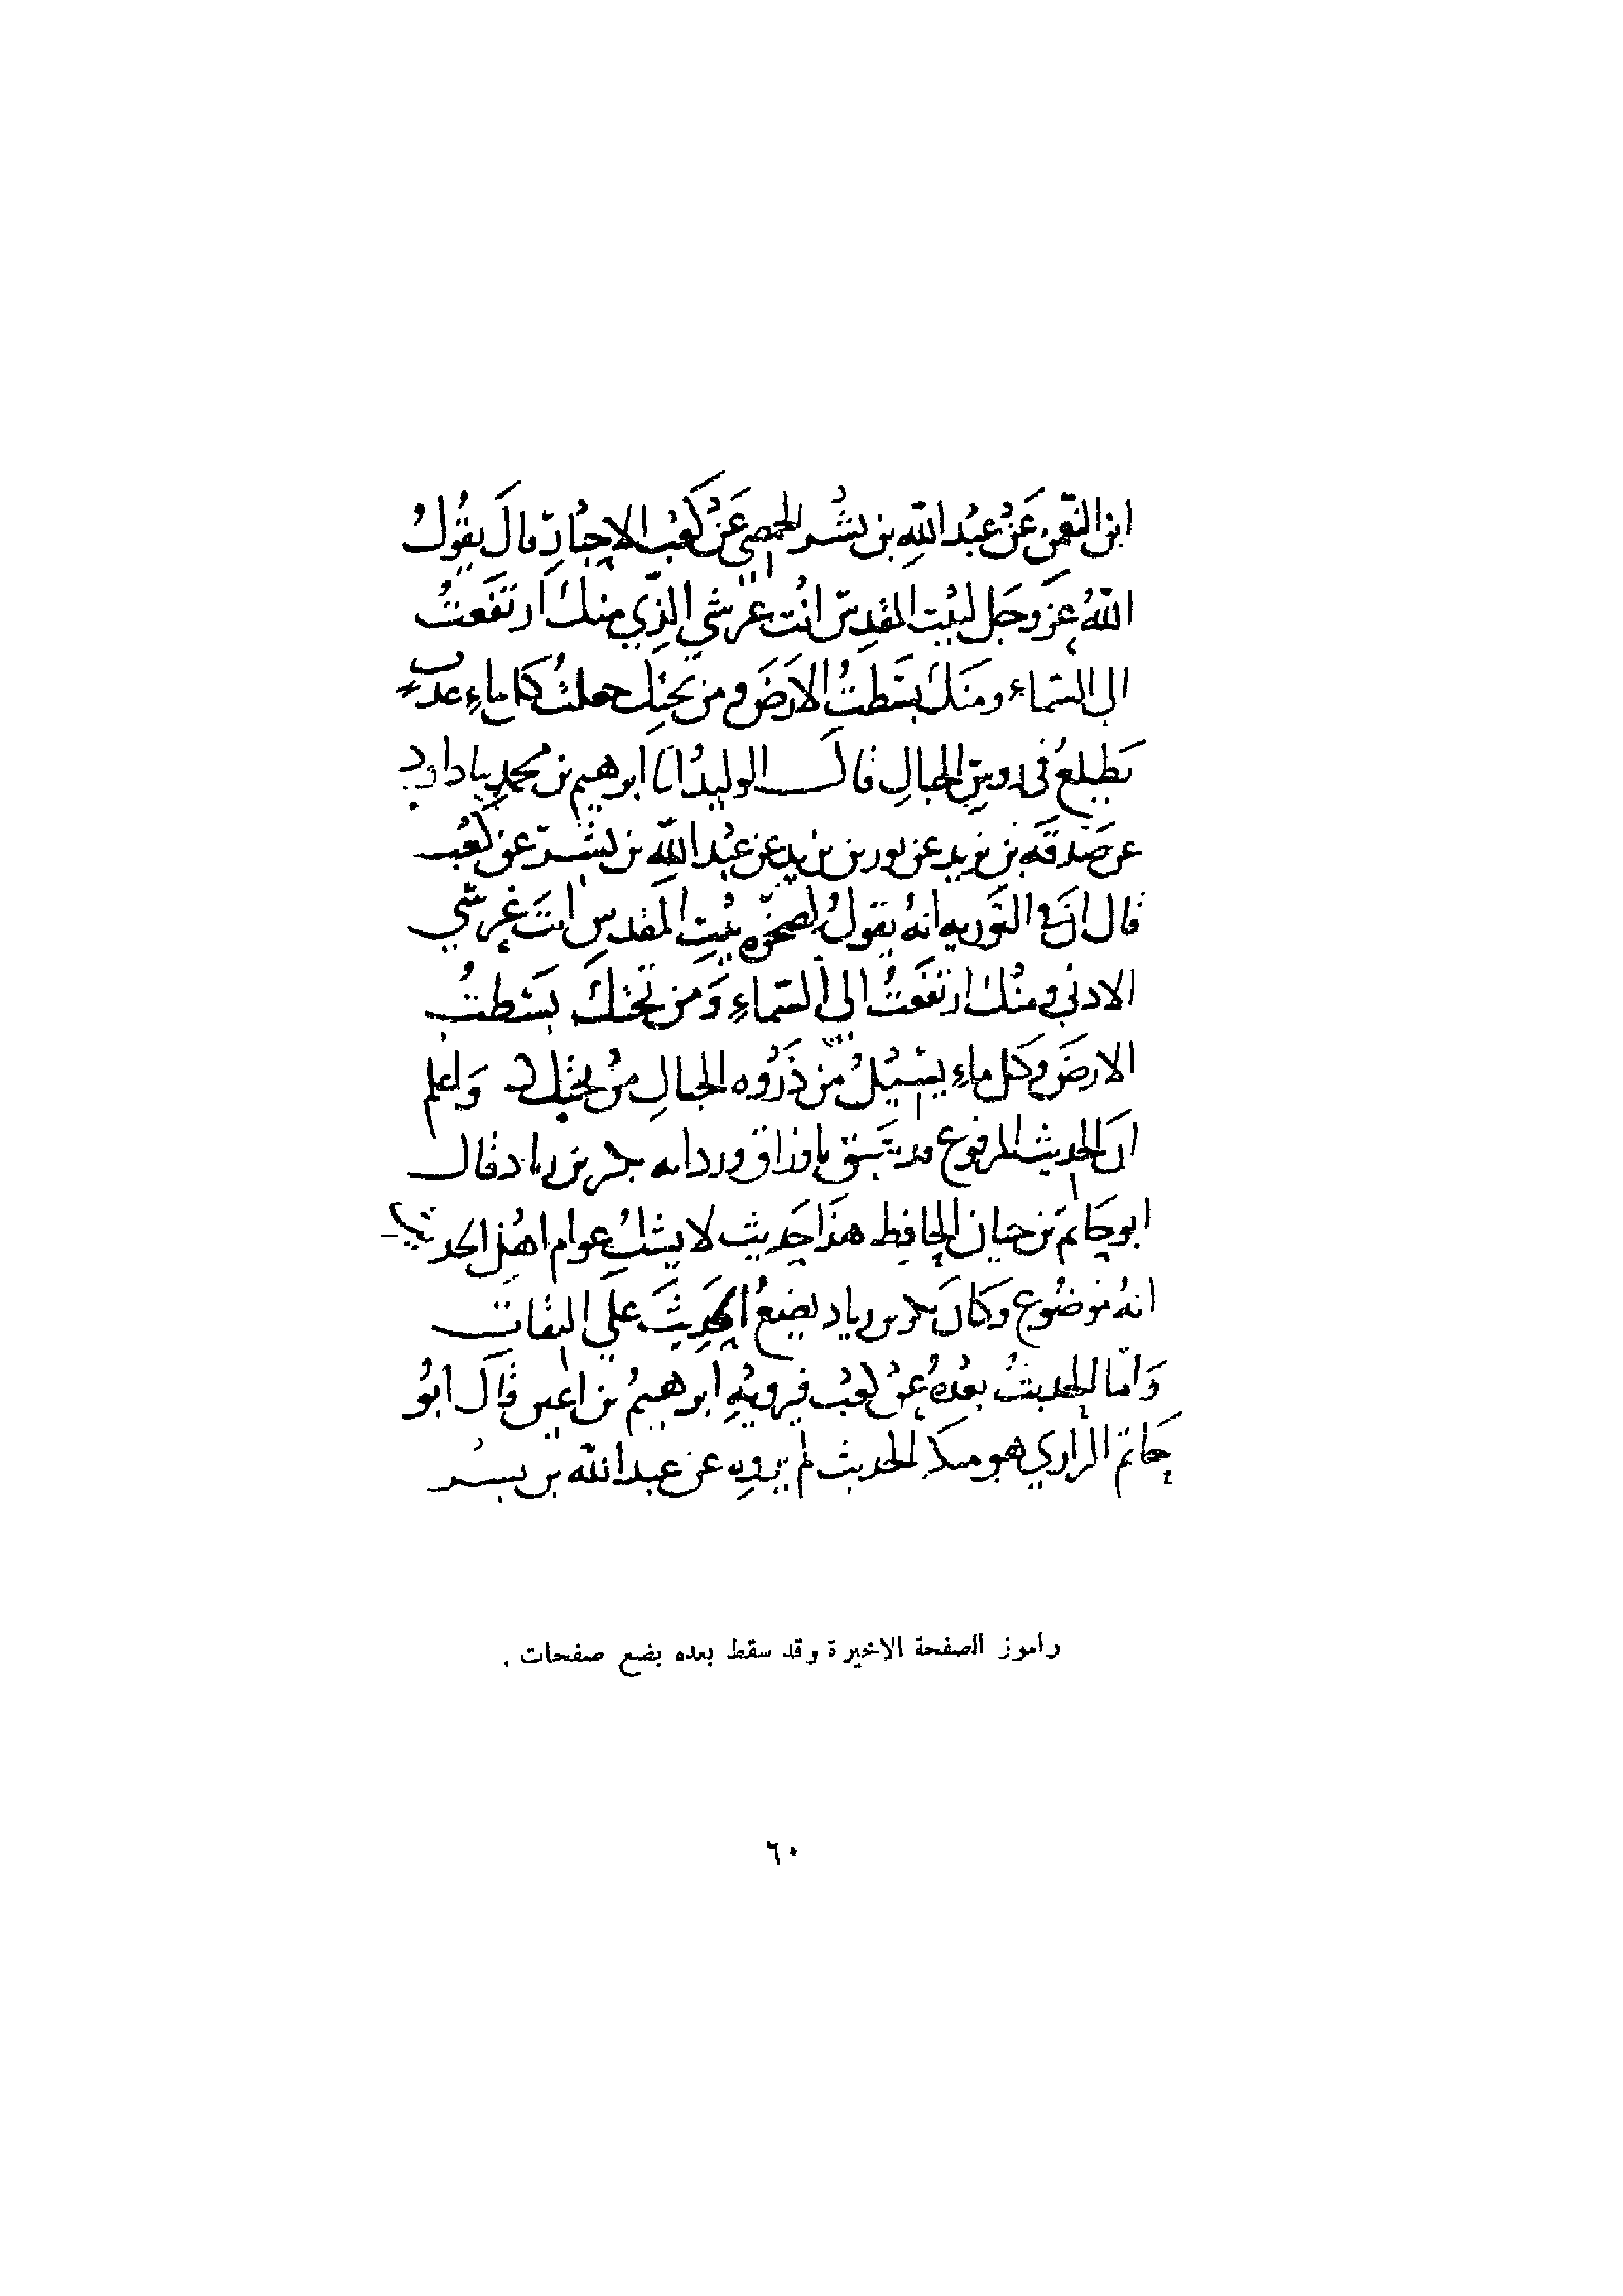 ابن النعمن عَنْ عبْد اللهِ بن بشْر الحمصي عَنْ كَعْب الاحبَار قال يقُولُ
اللهُ عز وجَل لبَيْت المقدس انْت عَرشي الذي منك ارتفَعتُ
الى السماء ومنكَ بسَطتُ الارَضَ ومن تحتِك جعلتُ كل ماءٍ عذبٍ
يَطلعُ في روس الجبالِ قالَ الوليدُ انا ابرهيم بن محمدٍ نا داود
عن صَدقَه بن يزيد عن ثور بن يزيد عن عبْد اللهِ بن بشْر عن كعْب
قال انَ في التَوريه انهُ يقولُ لصَخره بيْت المقدس انتَ عَرشي
الادنى ومنْك ارتفعتُ الى السَماءِ وَمن تحتكَ بسَطتُ
الارضَ وكل ماءٍ يسيْلُ منْ ذَرْوه الجبالِ منْ تحتك وَاعلم
انَ الحديث المرفوع قد سَبق باوراق وردايه بكر بن زياد قال
ابو حَاتم بن حبان الحافظ هذَا حَديث لا يشكُ عوام اهْل الحديث
انهُ موضُوع وكانَ بكر بن زياد يضعُ الحَديثَ على الثقات
وَامّا الحديثُ بعْدهُ عنْ كعْب فيرويْهِ ابرهيمُ بن اعين قالَ ابوُ
حَاتم الرازي هو منكر الحديث لم يروه عن عبد الله بن بسْر
راموز الصفحة الاخيرة وقد سقط بعده بضع صفحات .
٦٠